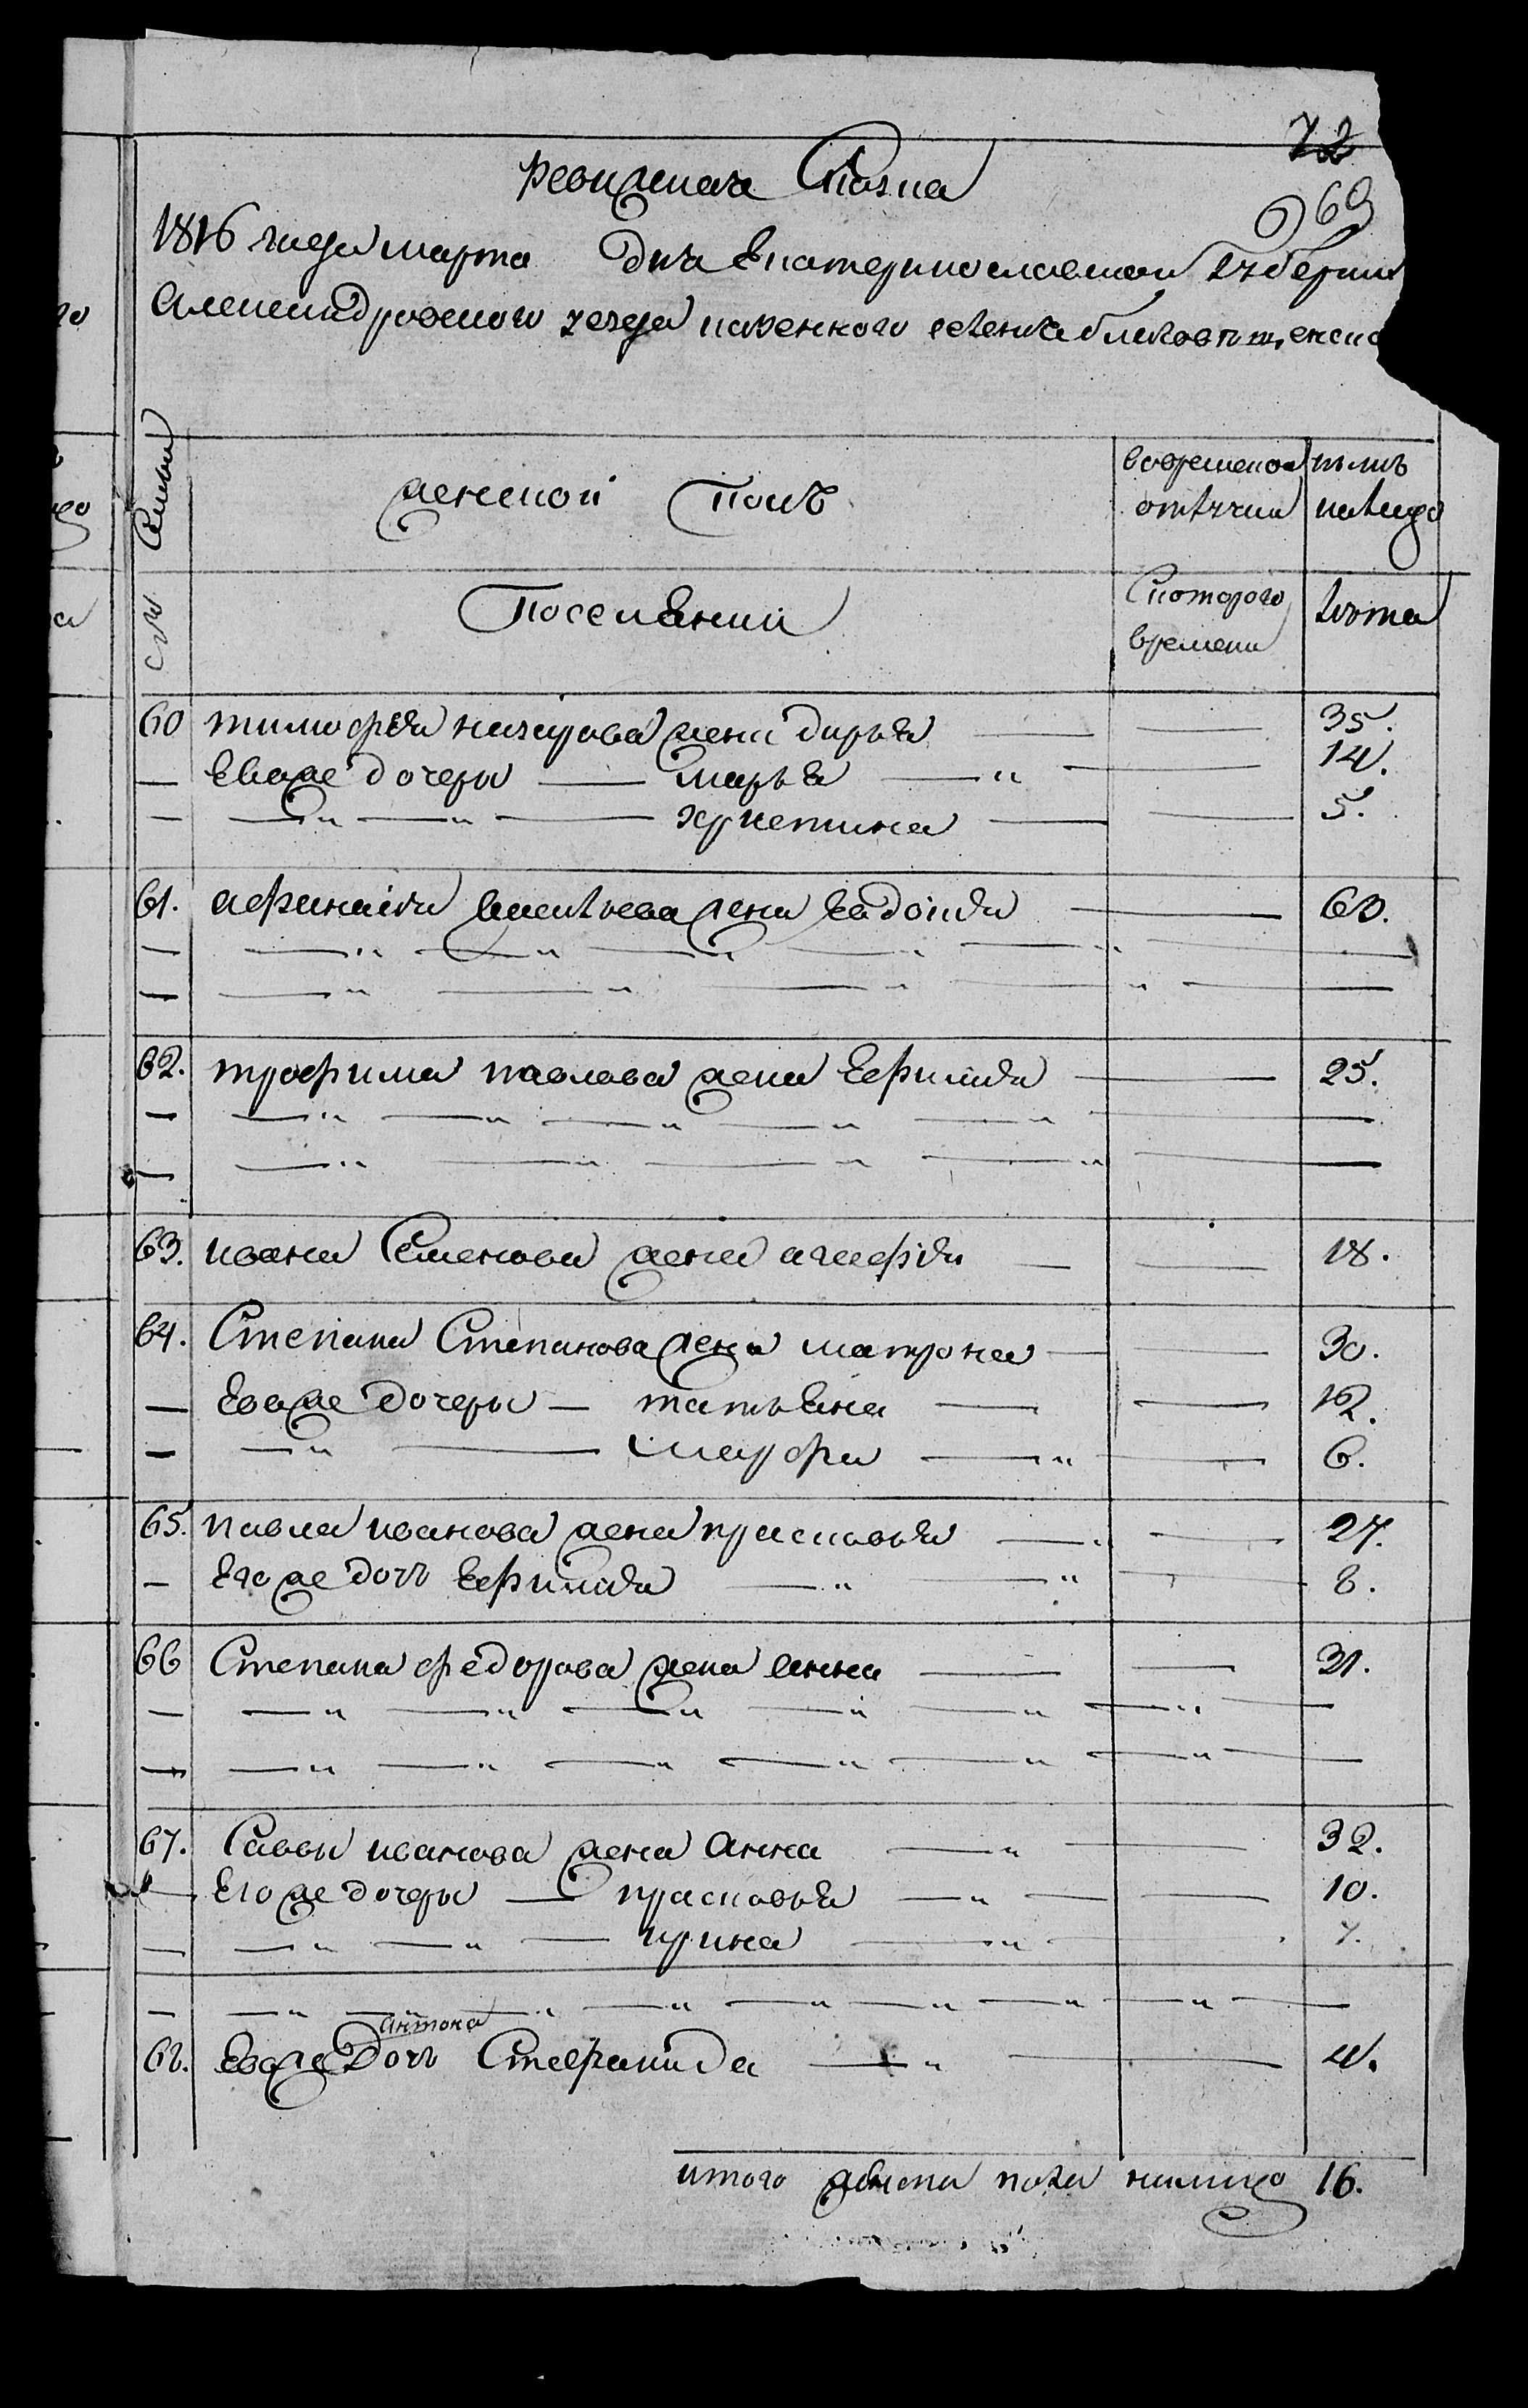 72
69
ревижская Сказка
1816 года марта дня Екатеринославской губернии
Александровского уезда казенного селения благовещенско
Семьи
женской полъ
во временой отлучки
ныне на лицо
№
Поселяний
С которого времени
Лѣта
60 тимофѣя назарова жена дарья — — 35.
— Евоже дочеры — марья — „ — 14.
— — „ — „ — христина — — 5.
61. афанасия васильева жена Евдокия — 60.
— — „ — „ — „ — „ — „ —
— — „ — „ — „ — „ —
62. трофима павлова жена Ефимия — 25.
— — „ — „ — „ — „ — „ —
— — „ — „ — „ — „ —
63. ивана Семенова жена агафия — — 18.
64. Степана Степанова жена матрона — — 30.
— Евоже дочеры — татьяна — — 12.
— — „ — мауфра — „ — 6.
65. павла иванова жена прасковья — „ — 27.
— Егоже дочь Ефимия — „ — „ — 8.
66 Степана федорова жена анна — — 31.
— — „ — „ — „ — „ — „ — „ —
— — „ — „ — „ — „ — „ — „ —
67. Саввы иванова жена Анна — „ — 32.
— Егоже дочеры — прасковья — „ — — 10.
— — „ — „ — ирина — „ — 7.
— — „ — „ — „ — „ — „ — „ — „ — „ —
антона
68. Евоже Дочь Стефанида — „ — 4.
итого женска пола налицо 16.